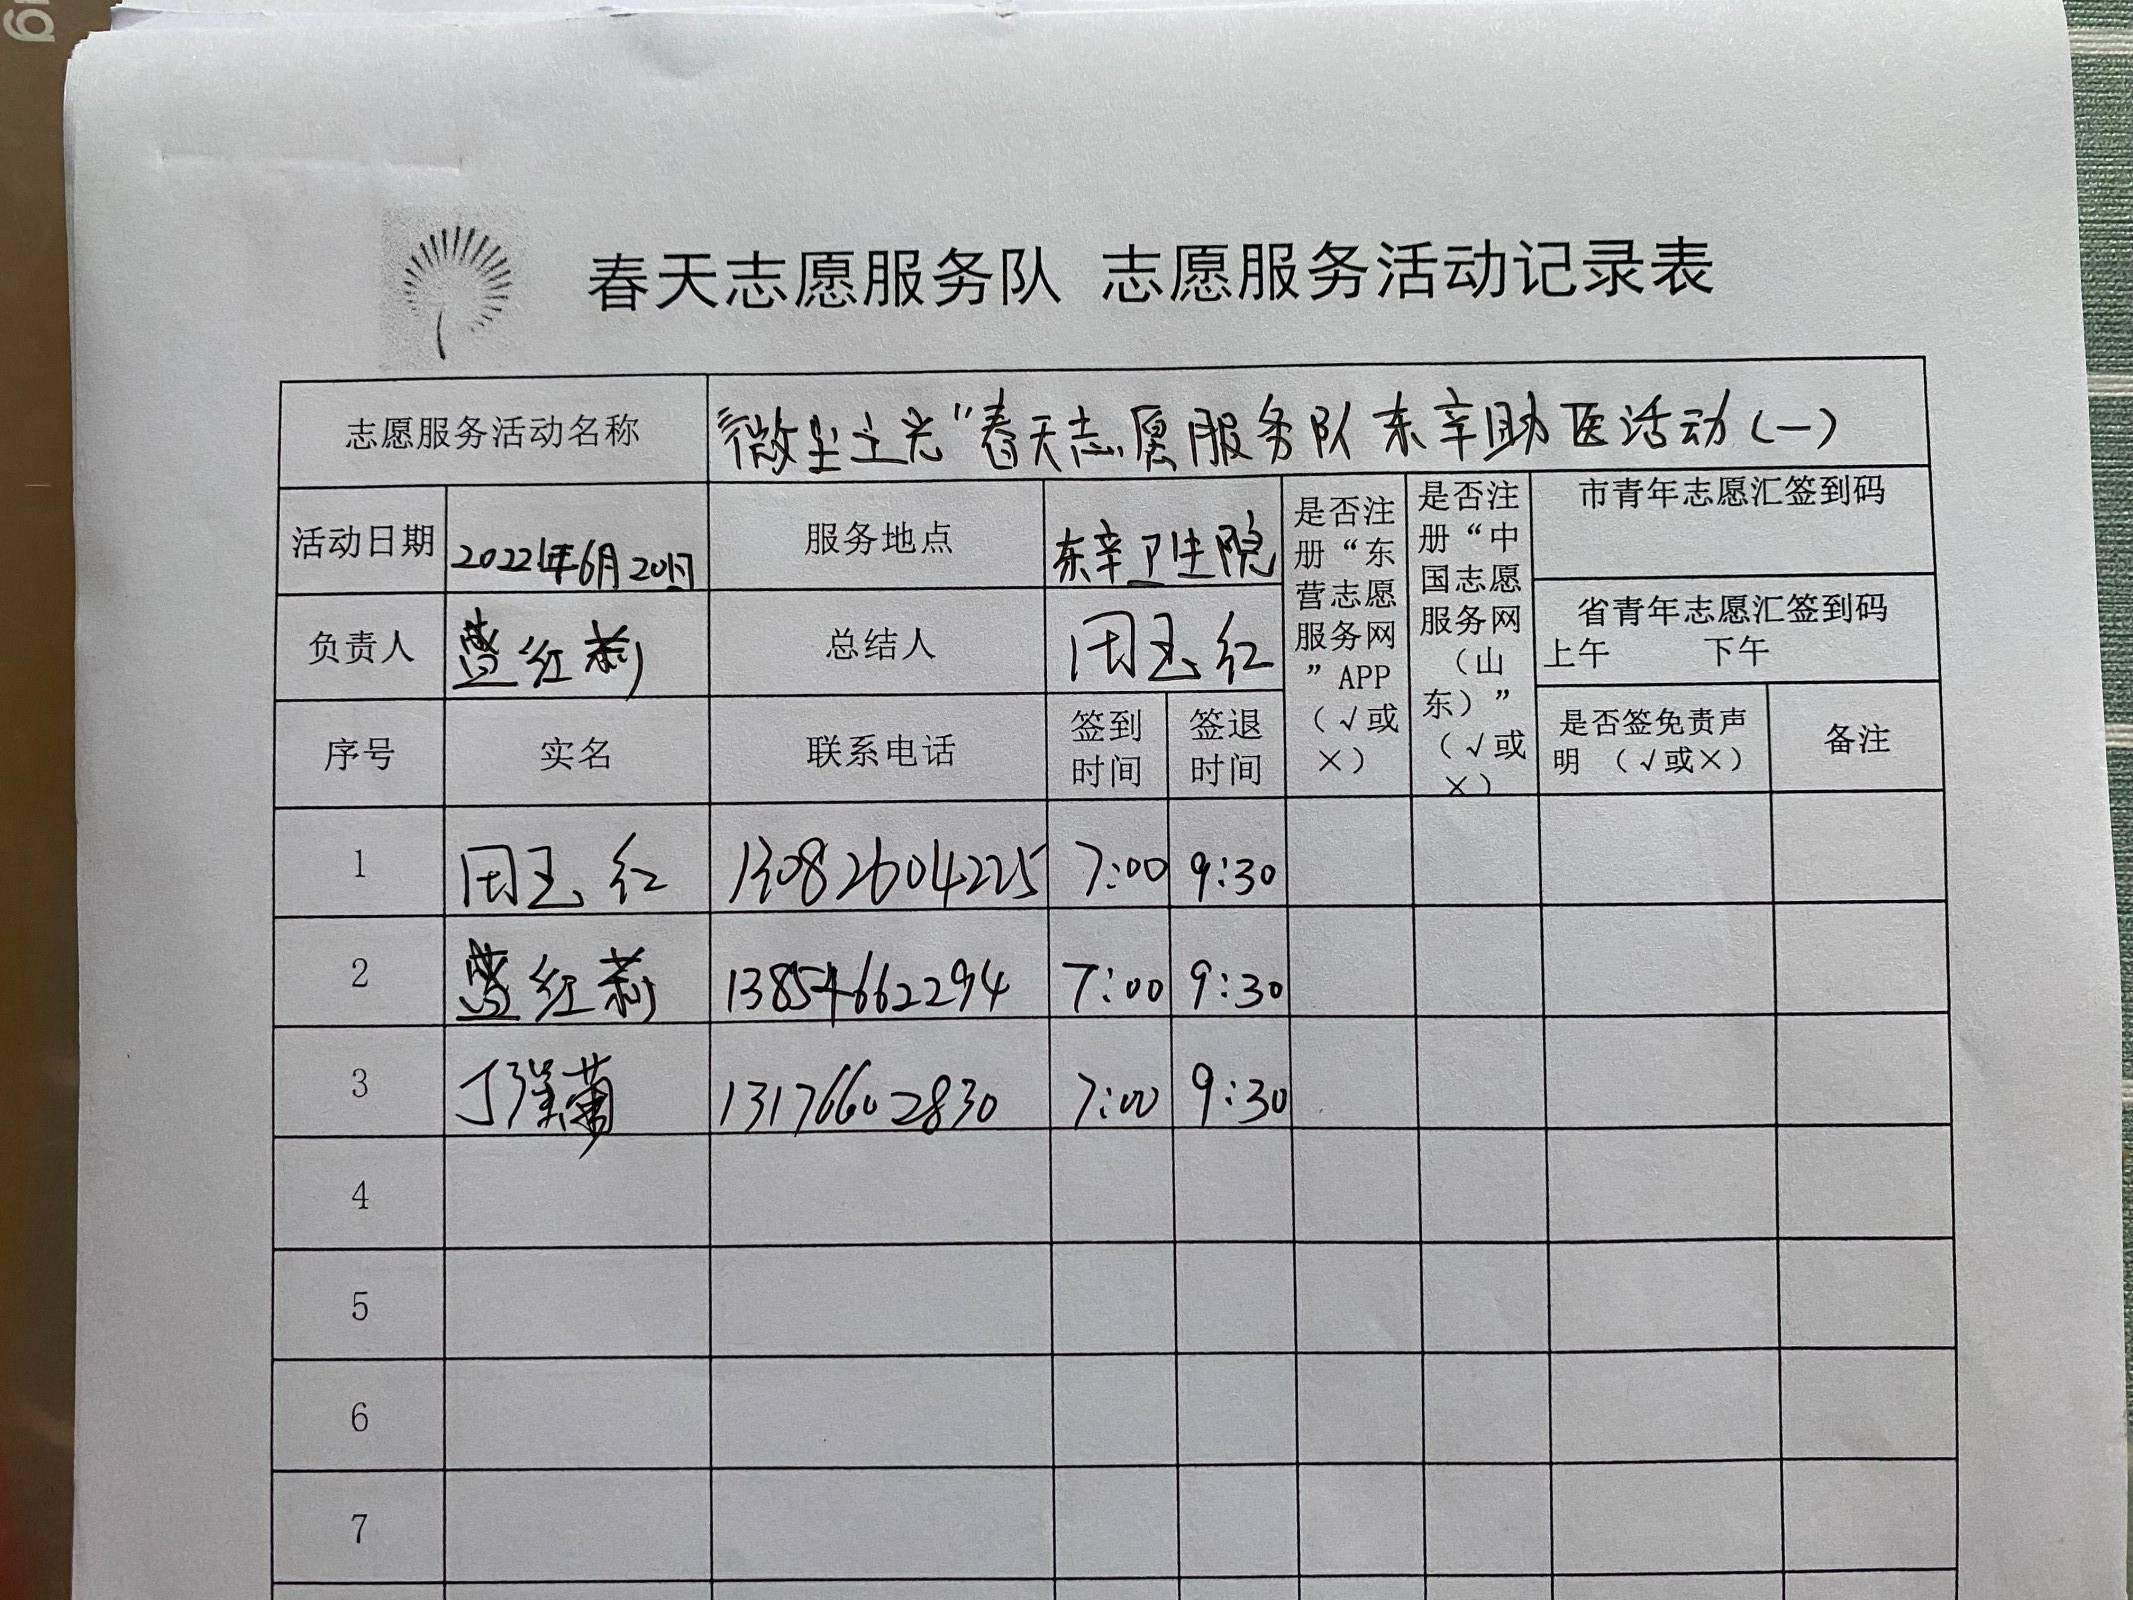 春天志愿服务队 志愿服务活动记录表
志愿服务活动名称 “微尘之光”春天志愿服务队东辛助医活动(一)
活动日期 2022年6月20日 服务地点 东辛卫生院
是否注册“东营志愿服务网”APP（√或×）
是否注册“中国志愿服务网（山东）”（√或×）
市青年志愿汇签到码
省青年志愿汇签到码
上午 下午
负责人 红莉 总结人 周玉红
序号 实名 联系电话 签到时间 签退时间 是否签免责声明 （√或×） 备注
1 周玉红 13082604225 7:00 9:30
2 红莉 13854662294 7:00 9:30
3 丁 13176602830 7:00 9:30
4
5
6
7